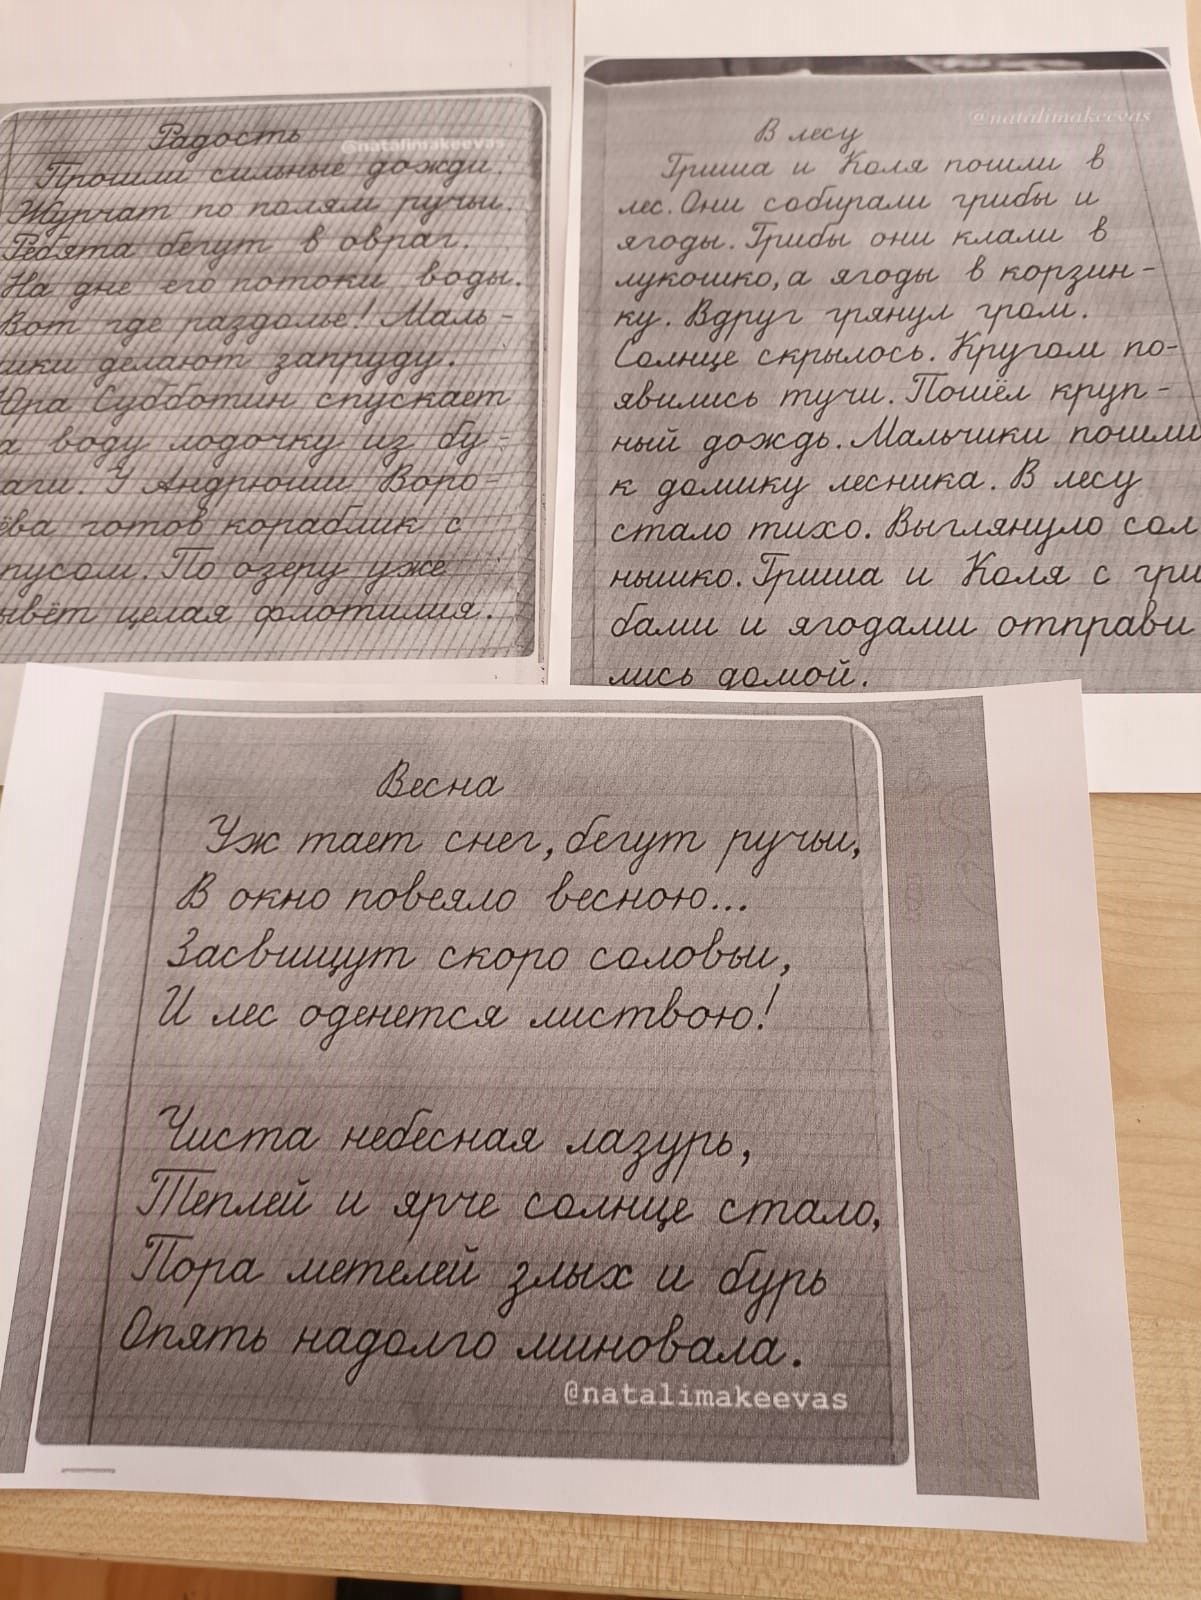 Радость
@natalimakeevas
Прошли сильные дожди.
Журчат по полям ручьи.
Ребята бегут в овраг.
На дне его потоки воды.
Вот где раздолье! Маль-
ики делают запруду.
Юра Субботин спускает
а воду лодочку из бу-
аги. У Андрюши Воро-
ёва готов кораблик с
пусом. По озеру уже
ывёт целая флотилия.
@natalimakeevas
В лесу
Гриша и Коля пошли в
лес. Они собирали грибы и
ягоды. Грибы они клали в
лукошко, а ягоды в корзин-
ку. Вдруг грянул гром.
Солнце скрылось. Кругом по-
явились тучи. Пошёл круп-
ный дождь. Мальчики пошли
к домику лесника. В лесу
стало тихо. Выглянуло сол
нышко. Гриша и Коля с гри
бами и ягодами отправи
лись домой.
Весна
Уж тает снег, бегут ручьи,
В окно повеяло весною...
Засвищут скоро соловьи,
И лес оденется листвою!
Чиста небесная лазурь,
Теплей и ярче солнце стало,
Пора метелей злых и бурь
Опять надолго миновала.
@natalimakeevas